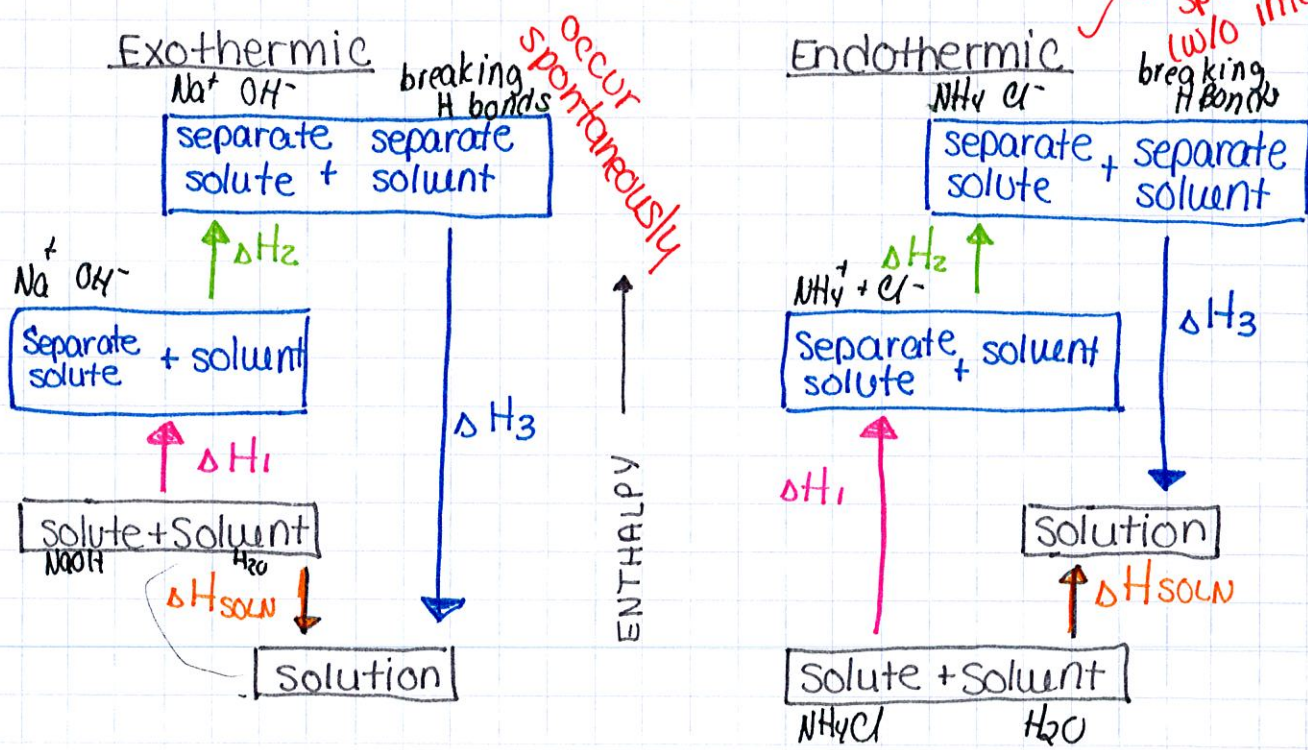 Exothermic
Na⁺ OH⁻
breaking
H bonds
occur
spontaneously
separate + separate
solute solvent
ΔH₂
Na⁺ OH⁻
Separate + solvent
solute
ΔH₁
ΔH₃
solute + Solvent
NaOH H₂O
ΔH SOLN
solution
ENTHALPY
Endothermic
(w/o
breaking
H Bonds
NH₄ Cl⁻
separate + separate
solute solvent
ΔH₂
NH₄⁺ + Cl⁻
Separate + solvent
solute
ΔH₃
ΔH₁
Solution
ΔH SOLN
Solute + Solvent
NH₄Cl H₂O